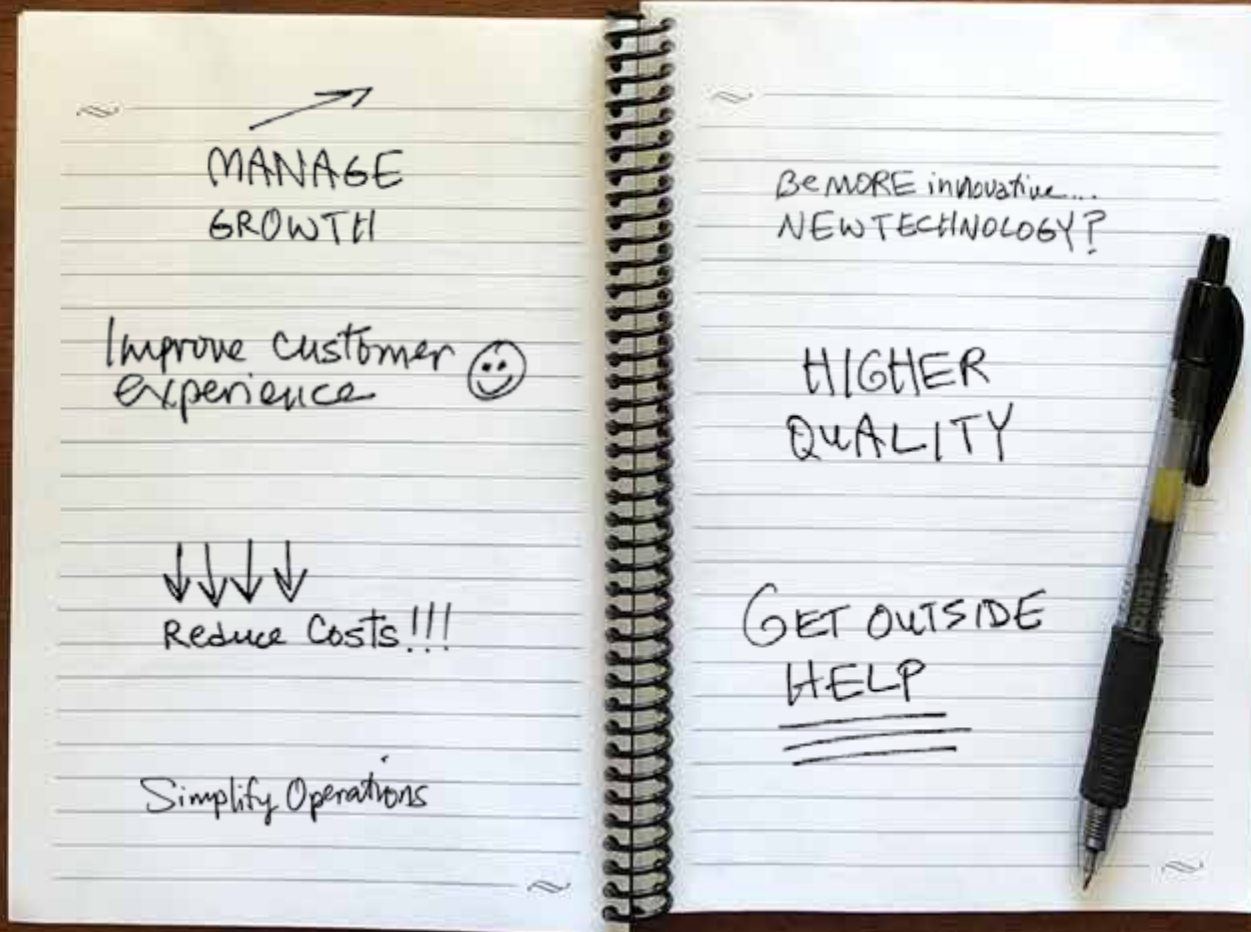 MANAGE
GROWTH
Improve customer
experience
Reduce Costs!!!
Simplify Operations
Be MORE innovative...
NEW TECHNOLOGY?
HIGHER
QUALITY
GET OUTSIDE
HELP